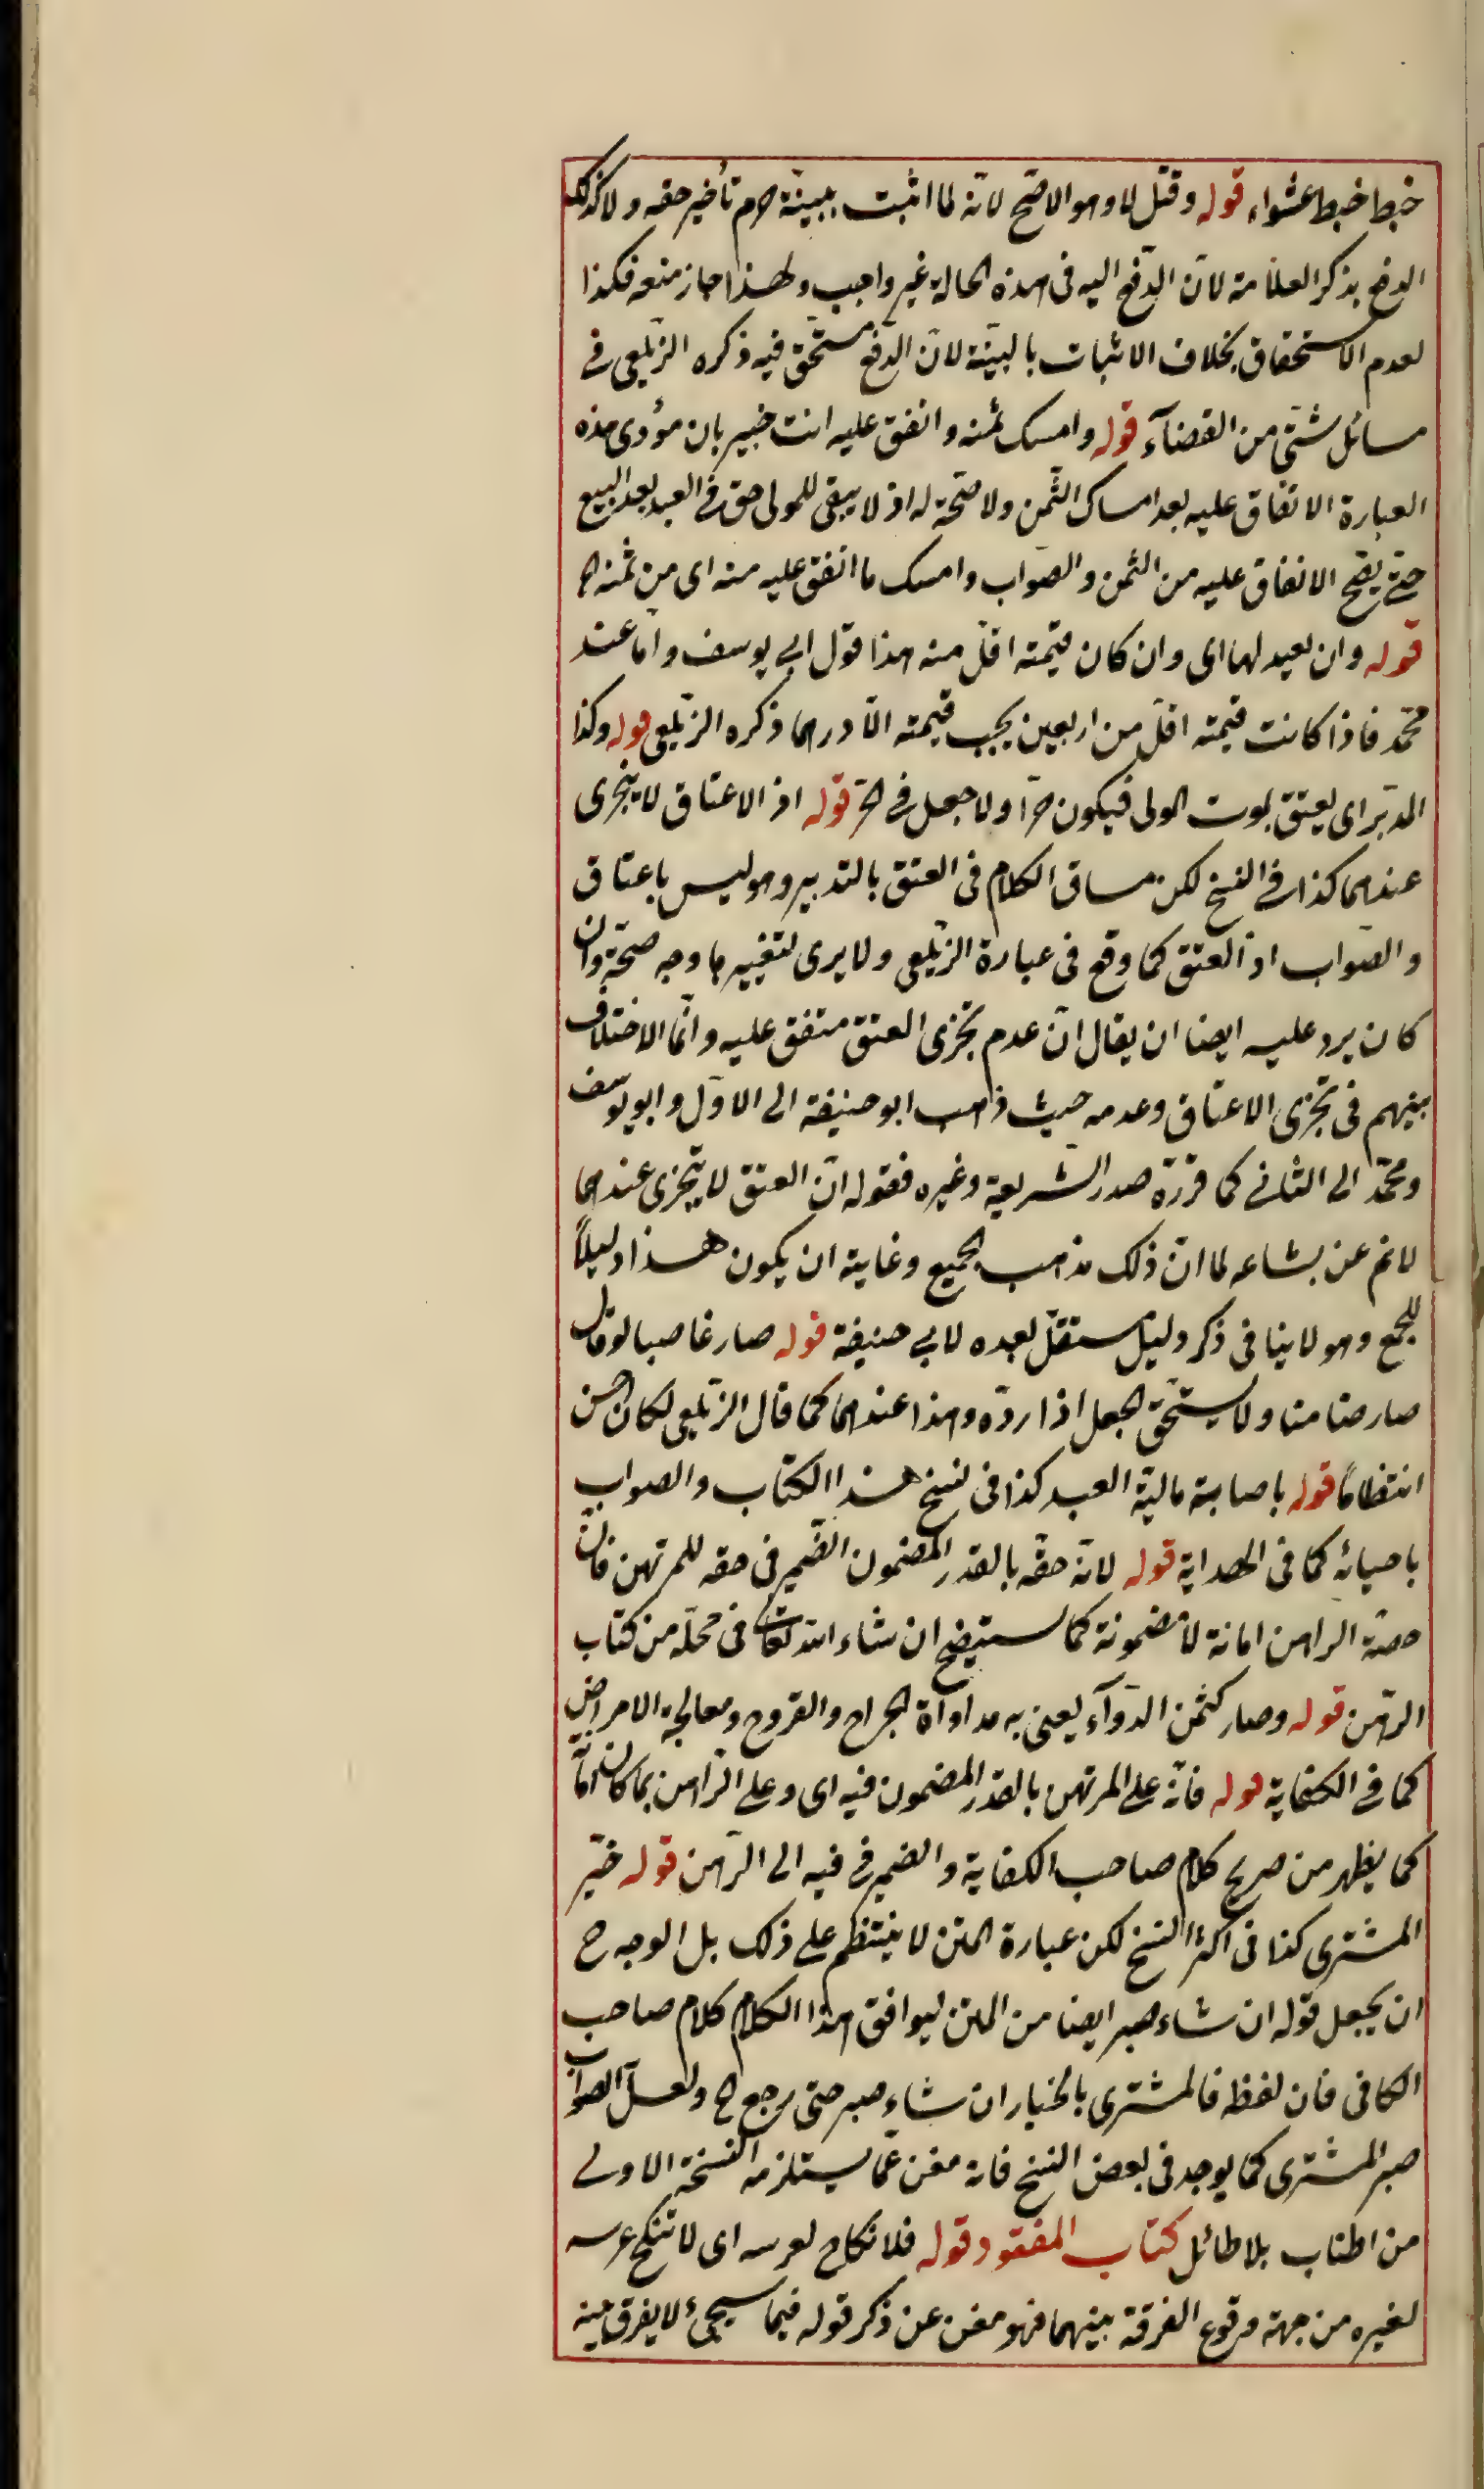 خبط خبط عشواء قوله وقيل لا وهو الاصح لانه لما اثبت ببينة حرم تأخير حقه ولا كذلك
الدفع بذكر العلامة لان الدفع اليه فى هذه الحالة غير واجب ولهذا جاز منعه فكذا
لعدم الاستحقاق بخلاف الاثبات بالبينة لان الدفع مستحق فيه ذكره الزيلعى فى
مسائل شتى من القضآء قوله وامسك ثمنه وانفق عليه انت خبير بان مؤدى هذه
العبارة الانفاق عليه بعد امساك الثمن ولا صحة له اذ لا يبقى للمولى حق فى العبد بعد البيع
حتى يصح الانفاق عليه من الثمن والصواب وامسك ما انفق عليه منه اى من ثمنه
قوله وان لم يعدلها اى وان كان قيمته اقل منه هذا قول ابى يوسف واما عند
محمد فاذا كانت قيمته اقل من اربعين يجب قيمته الا درهما ذكره الزيلعى قوله وكذا
المدبر اى يعتق بموت المولى فيكون حرا ولا جعل فى الحر قوله اذ الاعتاق لا يتجزى
عندهما كذا فى النسخ لكن مساق الكلام فى العتق بالتدبير وهو ليس باعتاق
والصواب اذ العتق كما وقع فى عبارة الزيلعى ولا يرى لتغييرها وجه صحة وان
كان يرد عليه ايضا ان يقال ان عدم تجزى العتق متفق عليه وانما الاختلاف
بينهم فى تجزى الاعتاق وعدمه حيث ذهب ابو حنيفة الى الاول وابو يوسف
ومحمد الى الثانى كما قرره صدر الشريعة وغيره فقوله ان العتق لا يتجزى عندهما
لا نم عن بشاعه لما ان ذلك مذهب الجميع وغايته ان يكون هذا دليلاً
للجمع وهو لا ينافى ذكر دليل مستقل بعده لابى حنيفة قوله صار غاصبا لو قال
صار ضامنا ولا يستحق الجعل اذا رده وهذا عندهما كما قال الزيلعى لكان احسن
انتظاماً قوله باصابة مالية العبد كذا فى نسخ هذا الكتاب والصواب
باحيائه كما فى الهداية قوله لانه حقه بالقدر المضمون الضمير فى حقه للمرتهن فان
حصة الراهن امانة لا مضمونة كما سيتضح ان شاء الله تعالى فى محله من كتاب
الرهن قوله وصار كثمن الدوآء يعنى به مداواة الجراح والقروح ومعالجة الامراض
كما فى الكفاية قوله فانه على المرتهن بالقدر المضمون فيه اى وعلى الراهن بما كان امانة
كما يظهر من صريح كلام صاحب الكفاية والضمير فى فيه الى الرهن قوله خير
المشترى كذا فى اكثر النسخ لكن عبارة المتن لا ينتظم على ذلك بل الوجه ح
ان يجعل قوله ان شاء صبر ايضا من المتن ليوافق هذا الكلام كلام صاحب
الكافى فان لفظه فالمشترى بالخيار ان شاء صبر حتى يرجع الخ ولعل الصواب
صبر المشترى كما يوجد فى بعض النسخ فانه مغن عما يستلزمه النسخة الاولى
من اطناب بلا طائل كتاب المفقود قوله فلا نكاح لعرسه اى لا تنكح عرسه
لغيره من جهة وقوع الفرقة بينهما فهو مغن عن ذكر قوله فيما سيجئ لا يفرق بينه